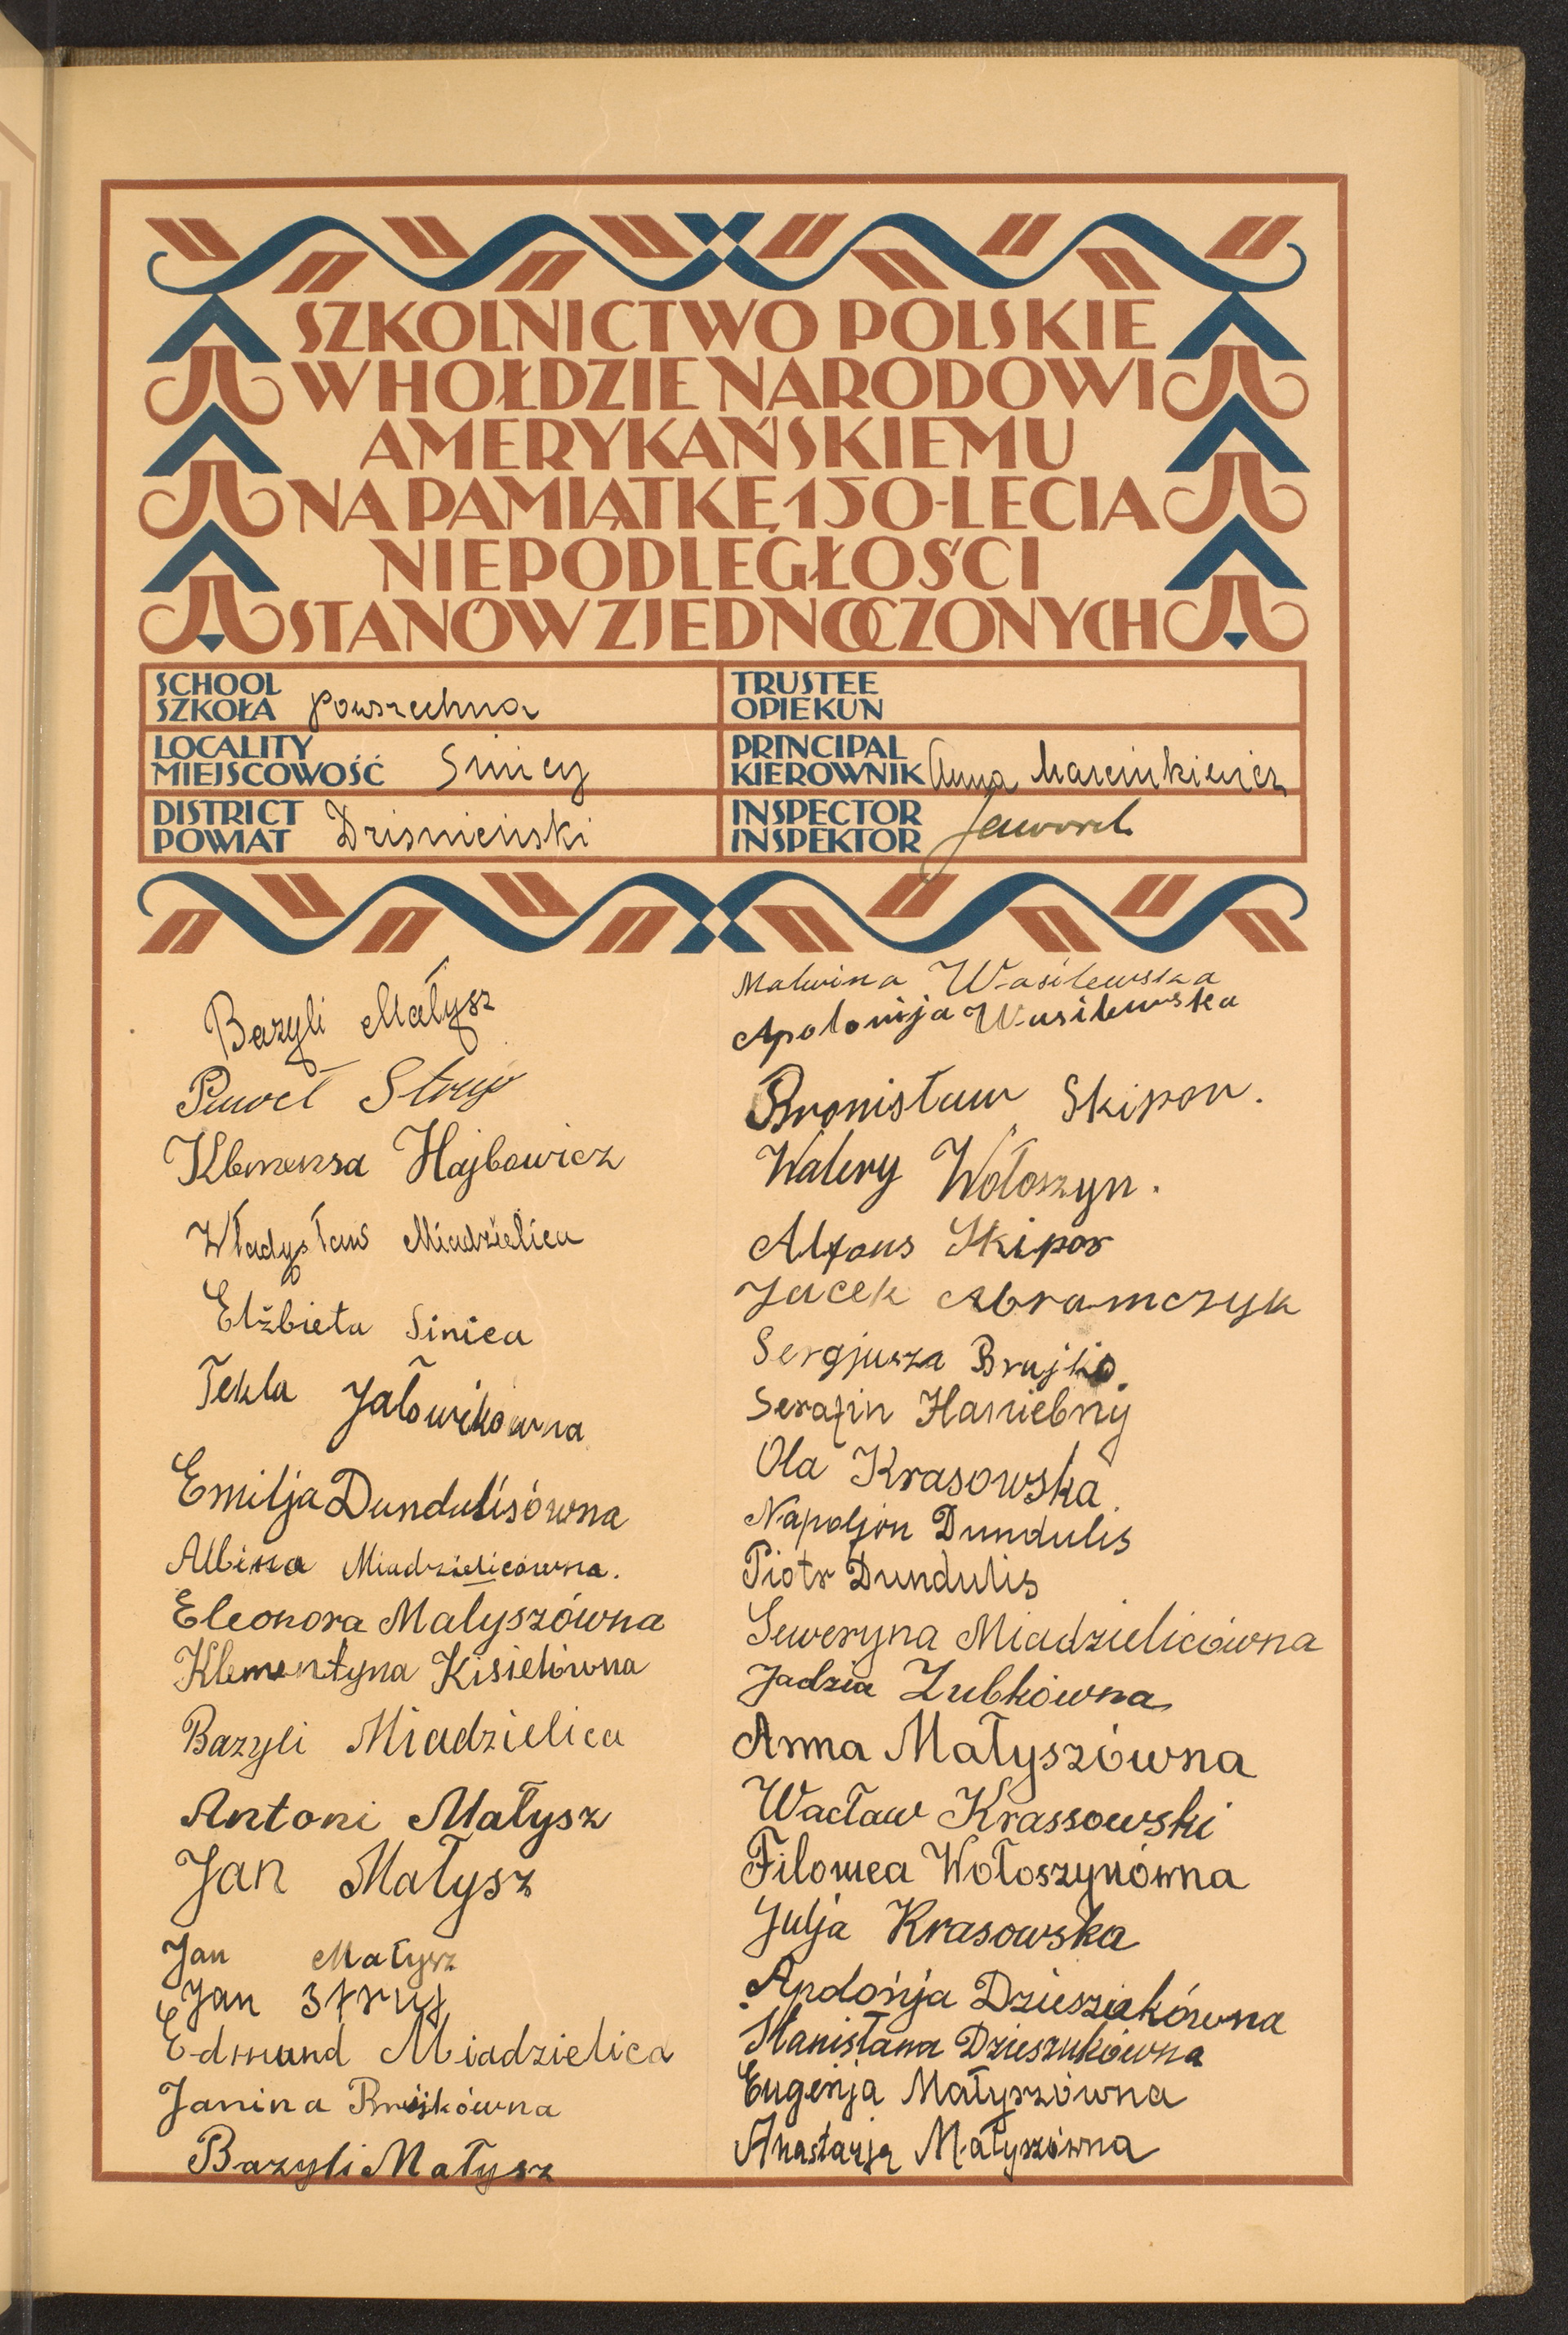 SZKOLNICTWO POLSKIE
W HOŁDZIE NARODOWI
AMERYKAŃSKIEMU
NA PAMIĄTKĘ 150-LECIA
NIEPODLEGŁOŚCI
STANÓW ZJEDNOCZONYCH
SCHOOL
SZKOŁA powszechna
LOCALITY
MIEJSCOWOŚĆ Sinicy
DISTRICT
POWIAT Dziśnieński
TRUSTEE
OPIEKUN
PRINCIPAL
KIEROWNIK Anna Marcinkiewicz
INSPECTOR
INSPEKTOR
Bazyli Małysz
Paweł Stryj
Klemensa Hajbowicz
Władysław Miadzielica
Elżbieta Sinica
Tekla Jałowikówna
Emilja Dundulisówna
Albina Miadzielicówna.
Eleonora Małyszówna
Klementyna Kisielówna
Bazyli Miadzielica
Antoni Małysz
Jan Małysz
Jan Małysz
Jan Struj
Edmund Miadzielica
Janina Brujkówna
Bazyli Małysz
Malwina Wasilewska
Apolonija Wasilewska
Bronisław Skipor.
Walery Wołoszyn.
Alfons Skipor
Jacek Abramczyk
Sergjusza Brujko.
Serafin Haniebny
Ola Krasowska.
Napoljon Dundulis
Piotr Dundulis
Seweryna Miadzielicówna
Jadzia Zubkówna
Anna Małyszówna
Wacław Krassowski
Filomea Wołoszynówna
Julja Krasowska
Apolońja Dzieszukówna
Stanisława Dzieszukówna
Eugenja Małyszówna
Anastazja Małyszówna